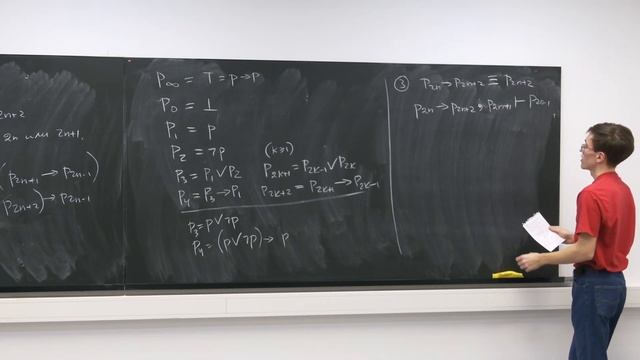 2n+2
2n или 2n+1.
(p₂ₙ₊₁ → p₂ₙ₋₁)
p₂ₙ₊₂) → p₂ₙ₋₁
P∞ = T = p → p
P₀ = ⊥
P₁ = p
P₂ = ¬p
P₃ = P₁ ∨ P₂
P₄ = P₃ → P₁
(k≥1)
P₂ₖ₊₁ = P₂ₖ₋₁ ∨ P₂ₖ
P₂ₖ₊₂ = P₂ₖ₊₁ → P₂ₖ₋₁
P₃ = p ∨ ¬p
P₄ = (p ∨ ¬p) → p
③ P₂ₙ → P₂ₙ₊₂ ≡ P₂ₙ₊₂
P₂ₙ → P₂ₙ₊₂, P₂ₙ₊₁ ⊢ P₂ₙ₋₁